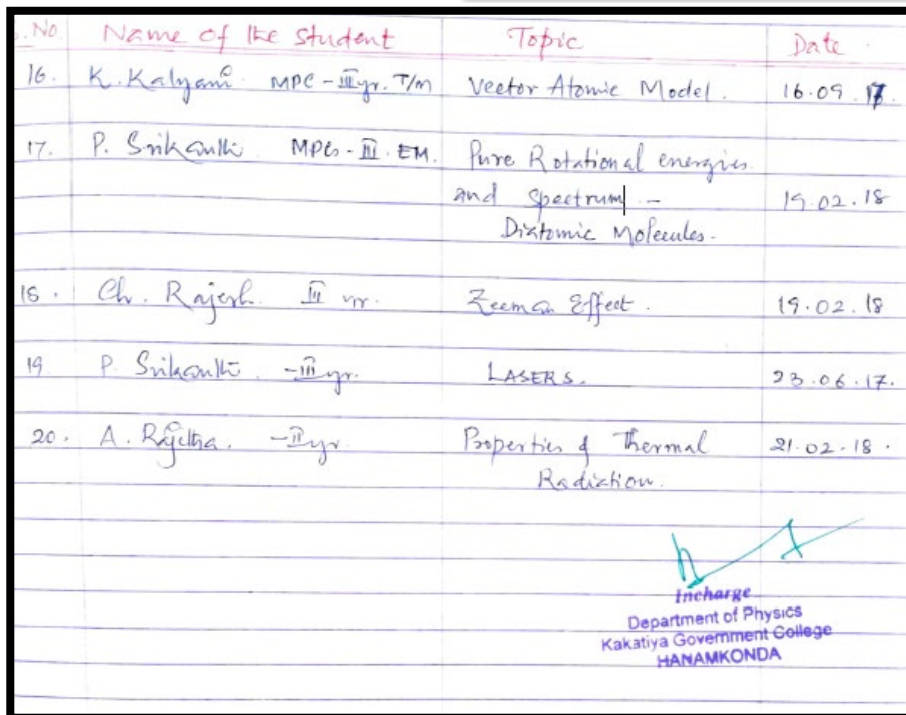 S. No. Name of the Student Topic Date
16. K. Kalyani MPC - III yr. T/M Vector Atomic Model. 16.09.17.
17. P. Srikanth MPCs - III. EM. Pure Rotational energies
and Spectrum - 19.02.18
Diatomic Molecules.
18. Ch. Rajesh. III yr. Zeeman Effect. 19.02.18
19. P. Srikanth - III yr. LASERS. 23.06.17.
20. A. Rajitha. - II yr. Properties of Thermal 21.02.18.
Radiation.
Incharge
Department of Physics
Kakatiya Government College
HANAMKONDA